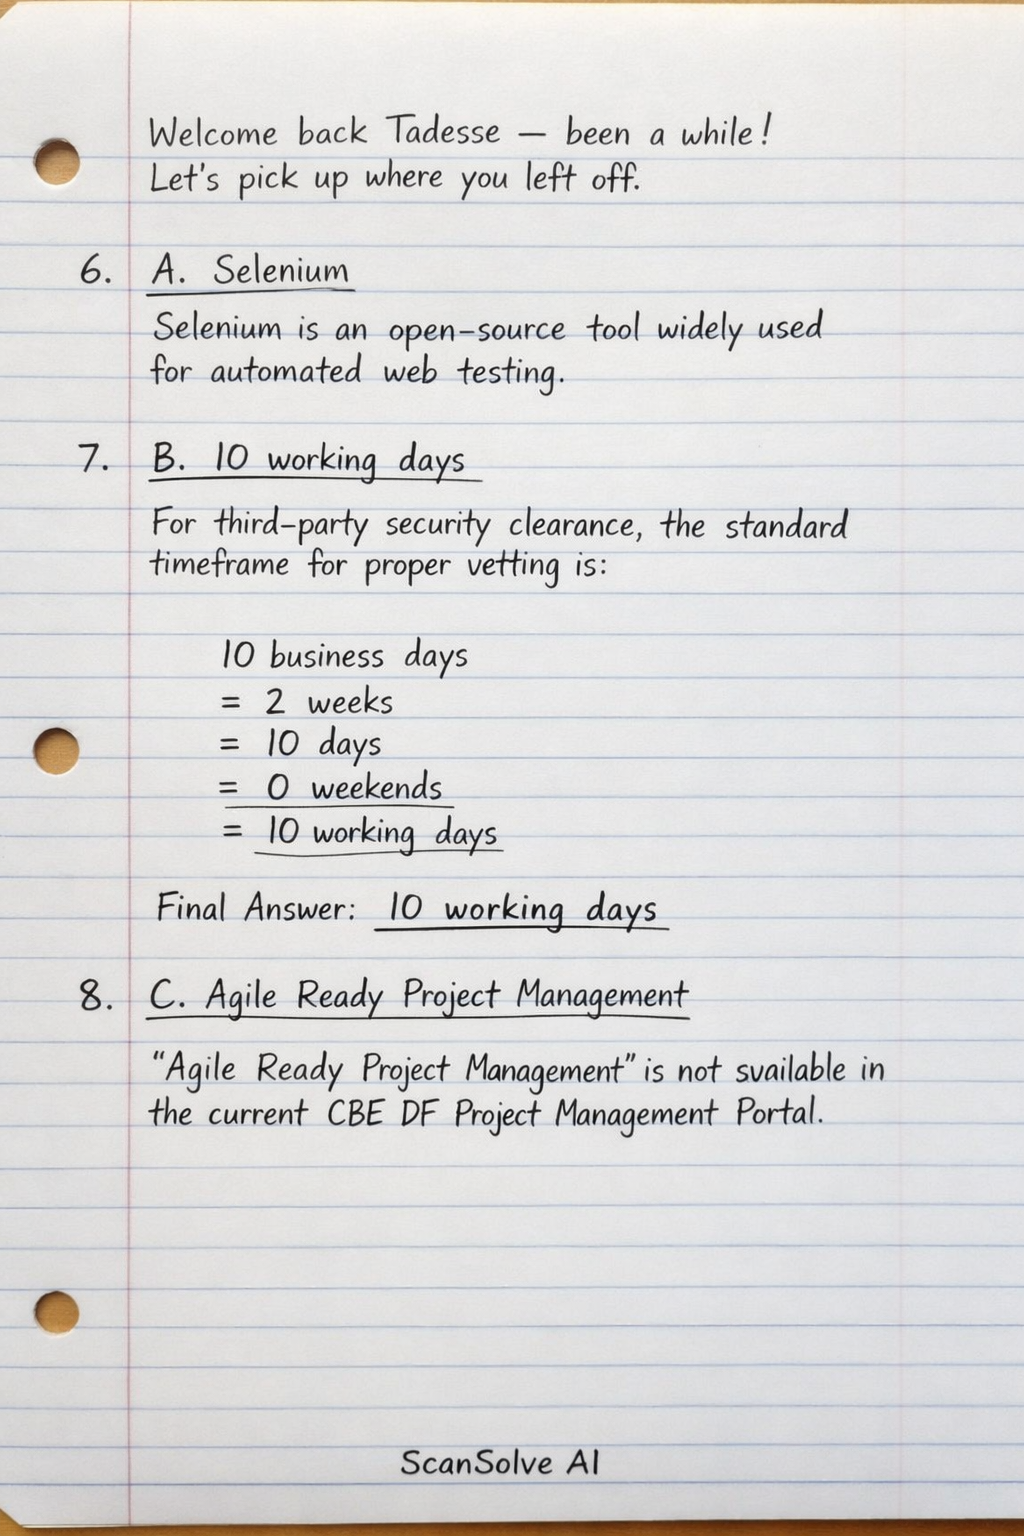 Welcome back Tadesse — been a while!
Let's pick up where you left off.
6. A. Selenium
Selenium is an open-source tool widely used
for automated web testing.
7. B. 10 working days
For third-party security clearance, the standard
timeframe for proper vetting is:
10 business days
= 2 weeks
= 10 days
= 0 weekends
= 10 working days
Final Answer: 10 working days
8. C. Agile Ready Project Management
"Agile Ready Project Management" is not svailable in
the current CBE DF Project Management Portal.
ScanSolve AI